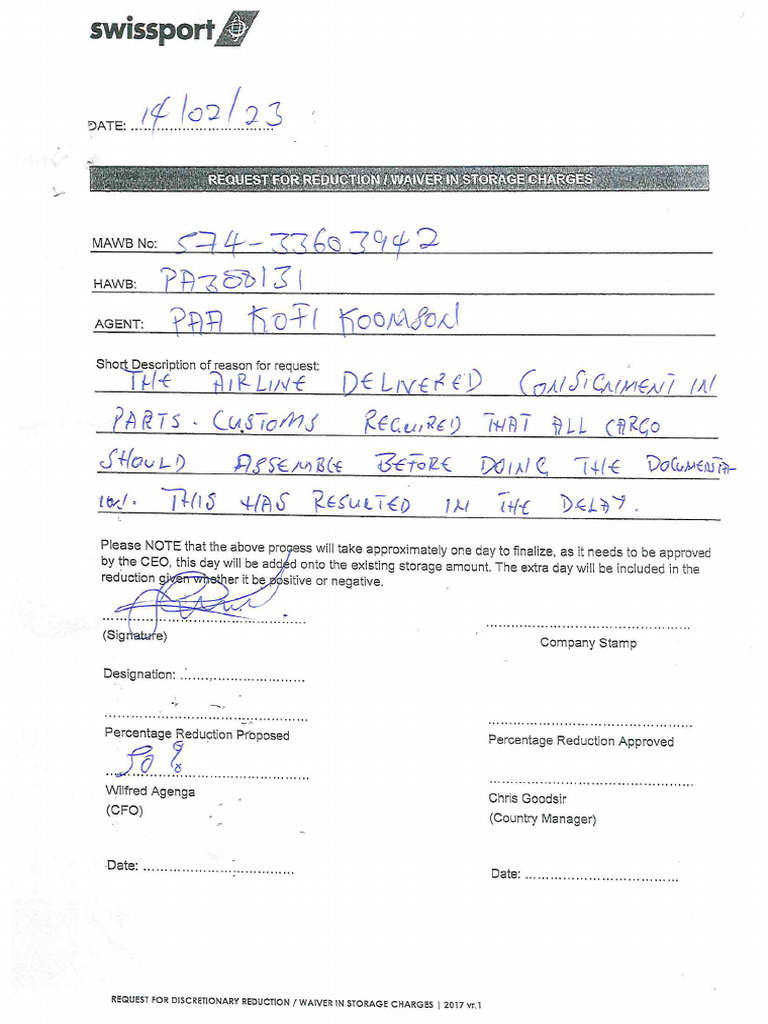 swissport
DATE: 14/02/23
REQUEST FOR REDUCTION / WAIVER IN STORAGE CHARGES
MAWB No: 574-33603942
HAWB: PA300131
AGENT: PAA KOFI KOOMSON
Short Description of reason for request:
THE AIRLINE DELIVERED CONSIGNMENT IN
PARTS. CUSTOMS REQUIRED THAT ALL CARGO
SHOULD ASSEMBLE BEFORE DOING THE DOCUMENTA-
ION. THIS HAS RESULTED IN THE DELAY.
Please NOTE that the above process will take approximately one day to finalize, as it needs to be approved
by the CEO, this day will be added onto the existing storage amount. The extra day will be included in the
reduction given whether it be positive or negative.
(Signature)
Company Stamp
Designation:
Percentage Reduction Proposed
Percentage Reduction Approved
50 %
Wilfred Agenga
(CFO)
Chris Goodsir
(Country Manager)
Date:
Date:
REQUEST FOR DISCRETIONARY REDUCTION / WAIVER IN STORAGE CHARGES | 2017 vr.1